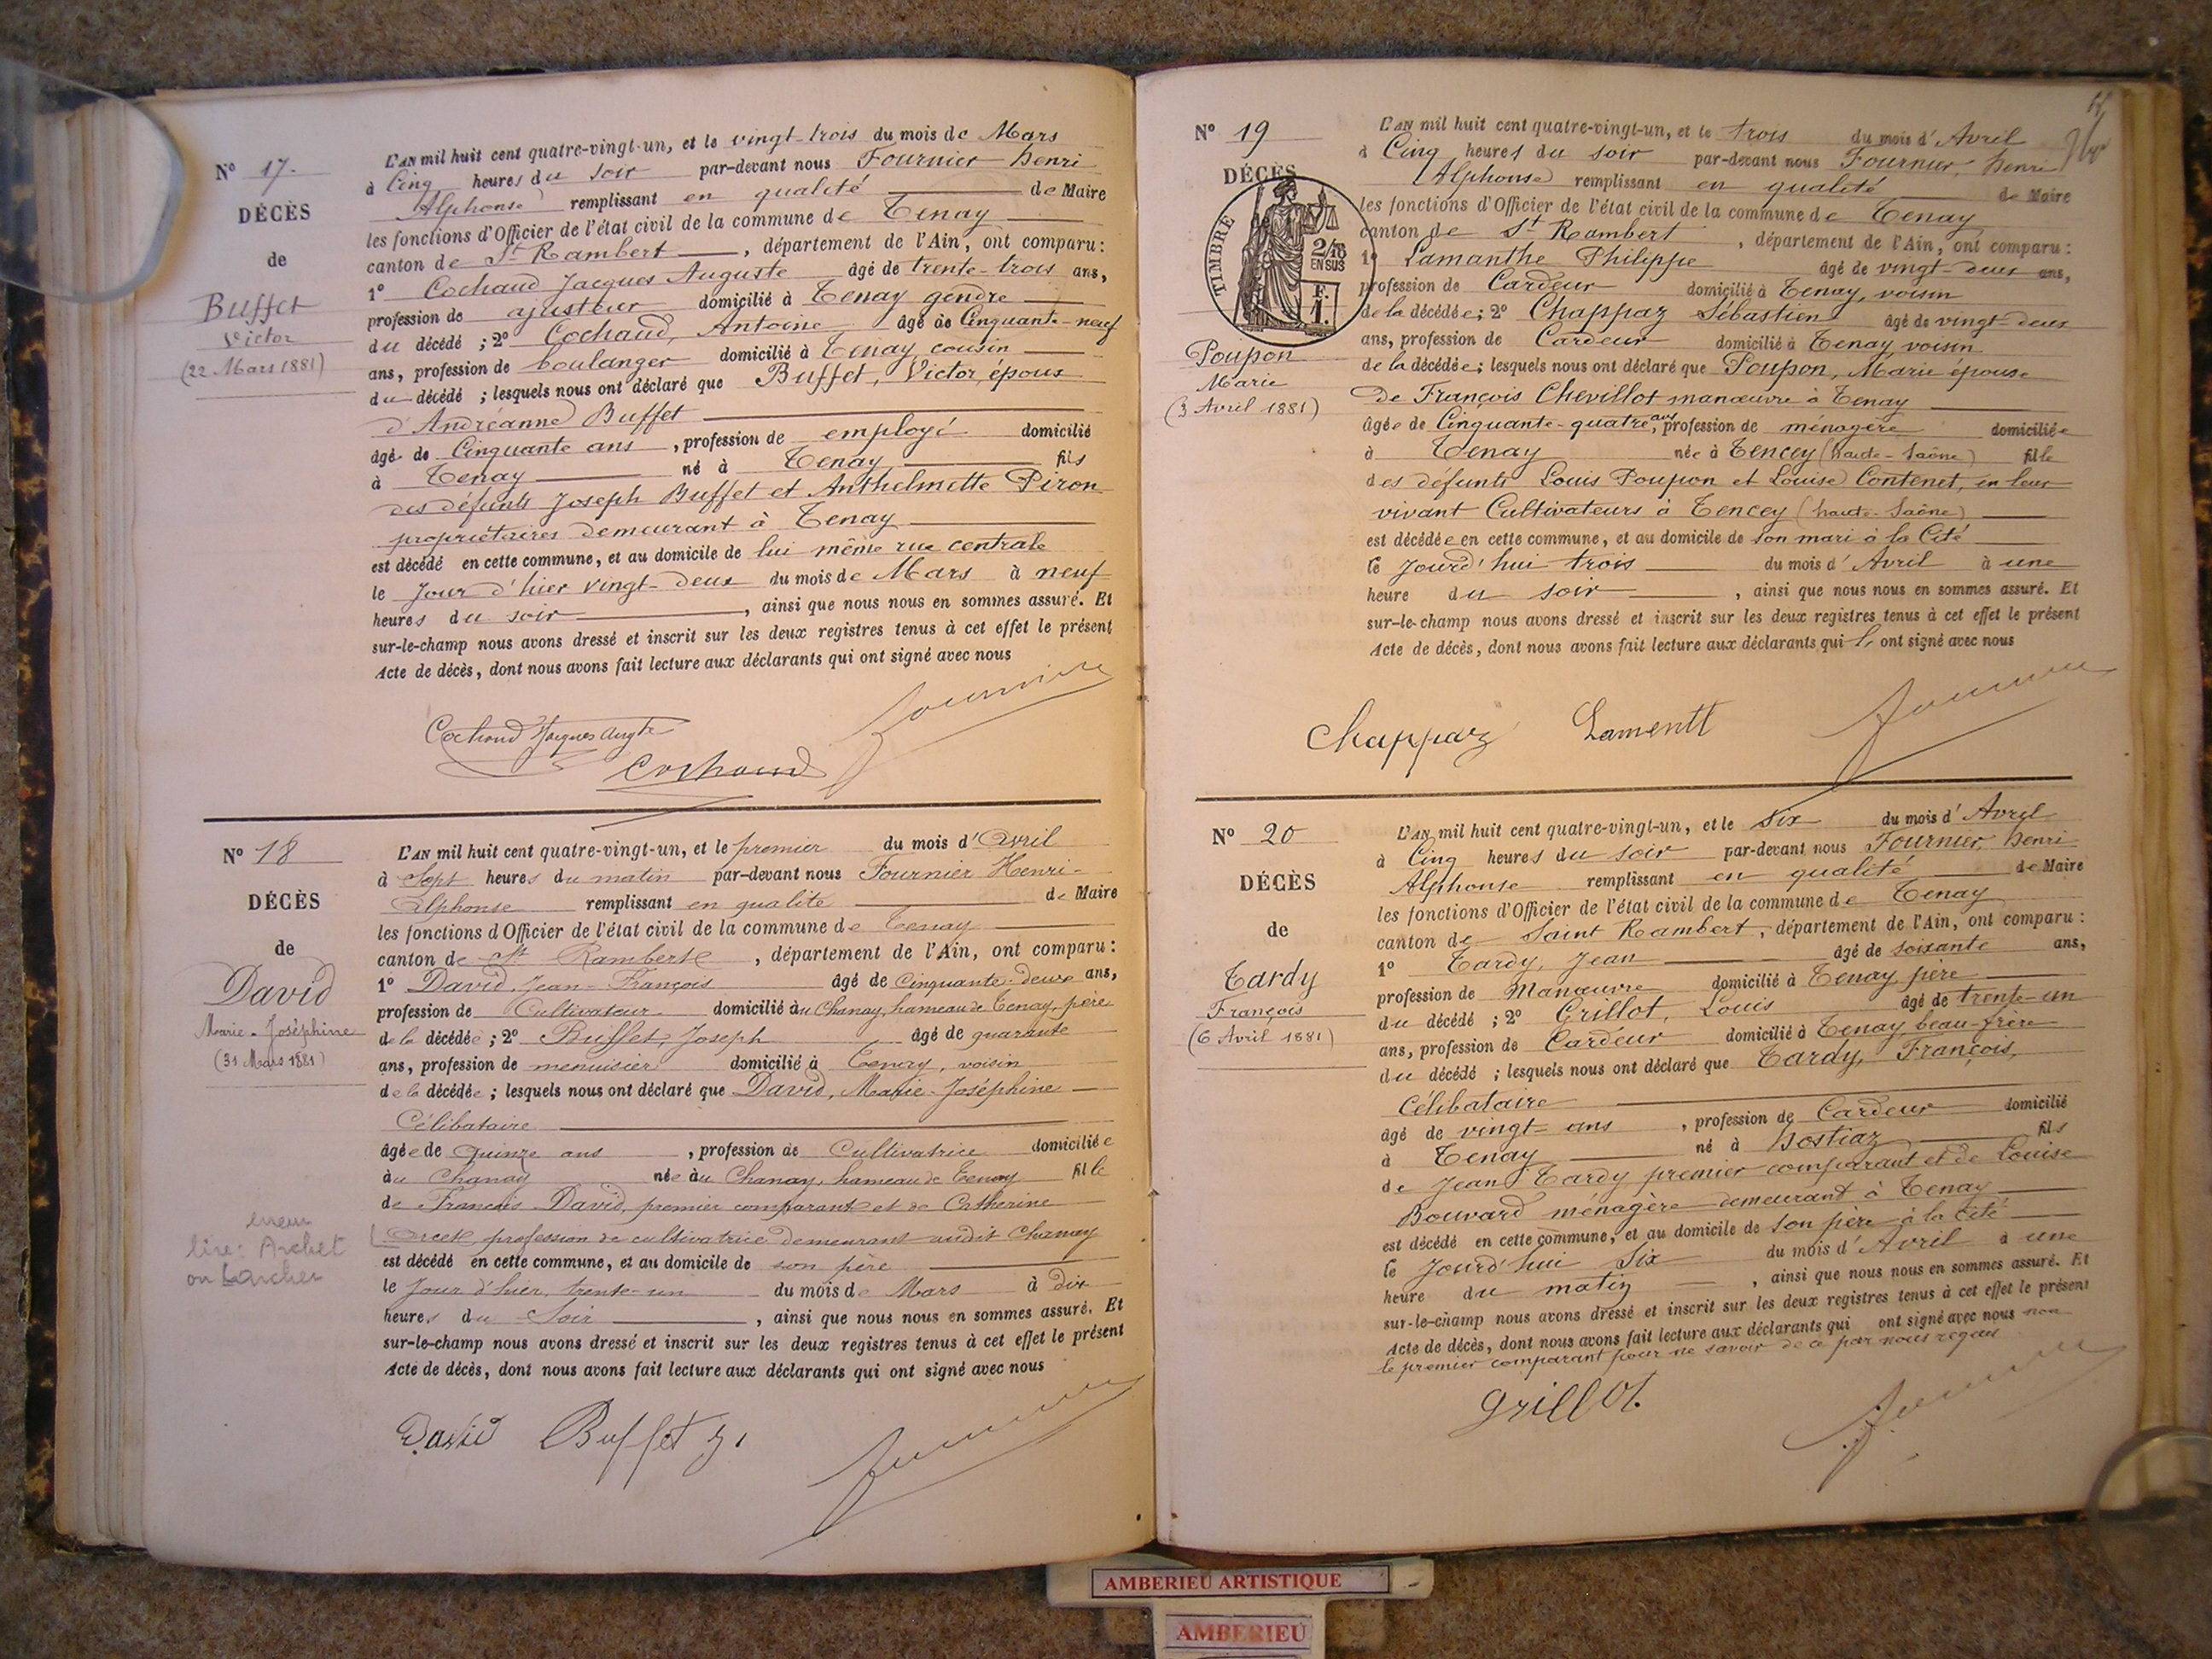 N° 17.
DÉCÈS
de
Buffet
Victor
(22 Mars 1881)
L'AN mil huit cent quatre-vingt-un, et le vingt-trois du mois de Mars
à Cinq heures du soir par-devant nous Fournier Henri
Alphonse remplissant en qualité de Maire
les fonctions d'Officier de l'état civil de la commune de Tenay
canton de St Rambert, département de l'Ain, ont comparu :
1° Cochaud Jacques Auguste âgé de trente-trois ans,
profession de ajusteur domicilié à Tenay gendre
du décédé ; 2° Cochaud, Antoine âgé de Cinquante-neuf
ans, profession de boulanger domicilié à Tenay, cousin
du décédé ; lesquels nous ont déclaré que Buffet, Victor, époux
d'Andréanne Buffet
âgé de Cinquante ans, profession de employé domicilié
à Tenay né à Tenay fils
des défunts Joseph Buffet et Anthelmette Piron
propriétaires demeurant à Tenay
est décédé en cette commune, et au domicile de lui même rue centrale
le Jour d'hier vingt-deux du mois de Mars à neuf
heures du soir, ainsi que nous nous en sommes assuré. Et
sur-le-champ nous avons dressé et inscrit sur les deux registres tenus à cet effet le présent
Acte de décès, dont nous avons fait lecture aux déclarants qui ont signé avec nous
Cochaud Jacques Augte
Cochaud
Fournier
N° 18
DÉCÈS
de
David
Marie-Joséphine
(31 Mars 1881)
erreur
lire : Archet
ou Larcher
L'AN mil huit cent quatre-vingt-un, et le premier du mois d'Avril
à Sept heures du matin par-devant nous Fournier Henri-
Alphonse remplissant en qualité de Maire
les fonctions d'Officier de l'état civil de la commune de Tenay
canton de St Rambert, département de l'Ain, ont comparu :
1° David, Jean-François âgé de Cinquante-deux ans,
profession de Cultivateur domicilié au Chanay, hameau de Tenay, père
de la décédée ; 2° Buffet, Joseph âgé de quarante
ans, profession de menuisier domicilié à Tenay, voisin
de la décédée ; lesquels nous ont déclaré que David, Marie-Joséphine
Célibataire
âgée de quinze ans, profession de Cultivatrice domiciliée
au Chanay née au Chanay, hameau de Tenay fille
de François David, premier comparant et de Catherine
Orcet, profession de cultivatrice demeurant audit Chanay
est décédé en cette commune, et au domicile de son père
le Jour d'hier, trente-un du mois de Mars à dix
heures du Soir, ainsi que nous nous en sommes assuré. Et
sur-le-champ nous avons dressé et inscrit sur les deux registres tenus à cet effet le présent
Acte de décès, dont nous avons fait lecture aux déclarants qui ont signé avec nous
David Buffet
N° 19
DÉCÈS
TIMBRE
2/10
EN SUS
F.
1.
Poupon
Marie
(3 Avril 1881)
L'AN mil huit cent quatre-vingt-un, et le trois du mois d'Avril
à Cinq heures du soir par-devant nous Fournier, Henri
Alphonse remplissant en qualité de Maire
les fonctions d'Officier de l'état civil de la commune de Tenay
canton de St Rambert, département de l'Ain, ont comparu :
1° Lamanthe Philippe âgé de vingt-deux ans,
profession de Cardeur domicilié à Tenay, voisin
de la décédée ; 2° Chappaz Sébastien âgé de vingt-deux
ans, profession de Cardeur domicilié à Tenay voisin
de la décédée ; lesquels nous ont déclaré que Poupon, Marie épouse
de François Chevillot manœuvre à Tenay
âgée de Cinquante-quatre ans, profession de ménagère domiciliée
à Tenay née à Tencey (haute-Saône) fille
des défunts Louis Poupon et Louise Contenet, en leur
vivant Cultivateurs à Tencey (haute-Saône)
est décédée en cette commune, et au domicile de son mari à la Cité
le Jourd'hui trois du mois d'Avril à une
heure du soir, ainsi que nous nous en sommes assuré. Et
sur-le-champ nous avons dressé et inscrit sur les deux registres tenus à cet effet le présent
Acte de décès, dont nous avons fait lecture aux déclarants qui ont signé avec nous
Chappaz Lamentt
N° 20
DÉCÈS
de
Tardy
François
(6 Avril 1881)
L'AN mil huit cent quatre-vingt-un, et le Six du mois d'Avril
à Cinq heures du soir par-devant nous Fournier, Henri
Alphonse remplissant en qualité de Maire
les fonctions d'Officier de l'état civil de la commune de Tenay
canton de Saint Rambert, département de l'Ain, ont comparu :
1° Tardy, Jean âgé de soixante ans,
profession de Manœuvre domicilié à Tenay, père
du décédé ; 2° Grillot, Louis âgé de trente-un
ans, profession de Cardeur domicilié à Tenay, beau-frère
du décédé ; lesquels nous ont déclaré que Tardy, François,
Célibataire
âgé de vingt ans, profession de Cardeur domicilié
à Tenay né à Hostiaz fils
de Jean Tardy premier comparant et de Louise
Bouvard ménagère demeurant à Tenay
est décédé en cette commune, et au domicile de son père à la Cité
le Jourd'hui Six du mois d'Avril à une
heure du matin, ainsi que nous nous en sommes assuré. Et
sur-le-champ nous avons dressé et inscrit sur les deux registres tenus à cet effet le présent
Acte de décès, dont nous avons fait lecture aux déclarants qui ont signé avec nous non
le premier comparant pour ne savoir de ce par nous requis
Grillot.
AMBERIEU ARTISTIQUE
AMBERIEU